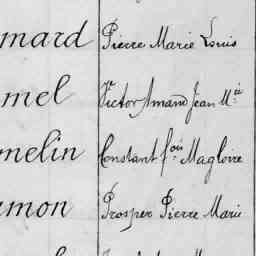 mard Pierre Marie Louis
mel Victor Amand Jean M.ie
melin Constant f.ois Magloire
mon Prosper Pierre Marie